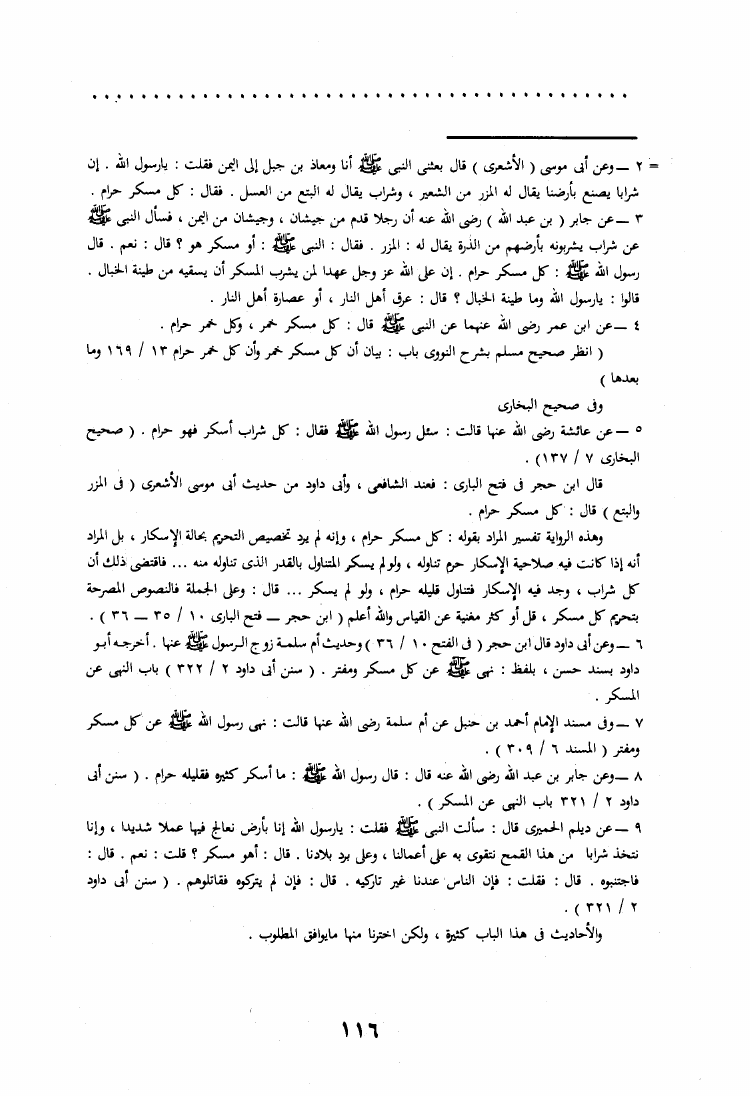 . . . . . . . . . . . . . . . . . . . . . . . . . . . . . . . . . . . . . . . .
= ٢ ــ وعن أبى موسى ( الأشعرى ) قال بعثنى النبى ﷺ أنا ومعاذ بن جبل إلى اليمن فقلت : يارسول الله . إن
شرابا يصنع بأرضنا يقال له المزر من الشعير ، وشراب يقال له البتع من العسل . فقال : كل مسكر حرام .
٣ ــ عن جابر ( بن عبد الله ) رضى الله عنه أن رجلا قدم من جيشان ، وجيشان من اليمن ، فسأل النبى ﷺ
عن شراب يشربونه بأرضهم من الذرة يقال له : المزر . فقال : النبى ﷺ : أو مسكر هو ؟ قال : نعم . قال
رسول الله ﷺ : كل مسكر حرام . إن على الله عز وجل عهدا لمن يشرب المسكر أن يسقيه من طينة الخبال .
قالوا : يارسول الله وما طينة الخبال ؟ قال : عرق أهل النار ، أو عصارة أهل النار .
٤ ــ عن ابن عمر رضى الله عنهما عن النبى ﷺ قال : كل مسكر خمر ، وكل خمر حرام .
( انظر صحيح مسلم بشرح النووى باب : بيان أن كل مسكر خمر وأن كل خمر حرام ١٣ / ١٦٩ وما
بعدها )
وفى صحيح البخارى
٥ ــ عن عائشة رضى الله عنها قالت : سئل رسول الله ﷺ فقال : كل شراب أسكر فهو حرام . ( صحيح
البخارى ٧ / ١٣٧) .
قال ابن حجر فى فتح البارى : فعند الشافعى ، وأبى داود من حديث أبى موسى الأشعرى ( فى المزر
والبتع ) قال : كل مسكر حرام .
وهذه الرواية تفسير المراد بقوله : كل مسكر حرام ، وإنه لم يرد تخصيص التحريم بحالة الإسكار ، بل المراد
أنه إذا كانت فيه صلاحية الإسكار حرم تناوله ، ولو لم يسكر المتناول بالقدر الذى تناوله منه ... فاقتضى ذلك أن
كل شراب ، وجد فيه الإسكار فتناول قليله حرام ، ولو لم يسكر ... قال : وعلى الجملة فالنصوص المصرحة
بتحريم كل مسكر ، قل أو كثر مغنية عن القياس والله أعلم ( ابن حجر ــ فتح البارى ١٠ / ٣٥ ــ ٣٦ ) .
٦ ــ وعن أبى داود قال ابن حجر ( فى الفتح ١٠ / ٣٦ ) وحديث أم سلمة زوج الرسول ﷺ عنها . أخرجه أبو
داود بسند حسن ، بلفظ : نهى ﷺ عن كل مسكر ومفتر . ( سنن أبى داود ٢ / ٣٢٢ ) باب النهى عن
المسكر .
٧ ــ وفى مسند الإمام أحمد بن حنبل عن أم سلمة رضى الله عنها قالت : نهى رسول الله ﷺ عن كل مسكر
ومفتر ( المسند ٦ / ٣٠٩ ) .
٨ ــ وعن جابر بن عبد الله رضى الله عنه قال : قال رسول الله ﷺ : ما أسكر كثيره فقليله حرام . ( سنن أبى
داود ٢ / ٣٢١ باب النهى عن المسكر ) .
٩ ــ عن ديلم الحميرى قال : سألت النبى ﷺ فقلت : يارسول الله إنا بأرض نعالج فيها عملا شديدا ، وإنا
نتخذ شرابا من هذا القمح نتقوى به على أعمالنا ، وعلى برد بلادنا . قال : أهو مسكر ؟ قلت : نعم . قال :
فاجتنبوه . قال : فقلت : فإن الناس عندنا غير تاركيه . قال : فإن لم يتركوه فقاتلوهم . ( سنن أبى داود
٢ / ٣٢١ ) .
والأحاديث فى هذا الباب كثيرة ، ولكن اخترنا منها مايوافق المطلوب .
١١٦